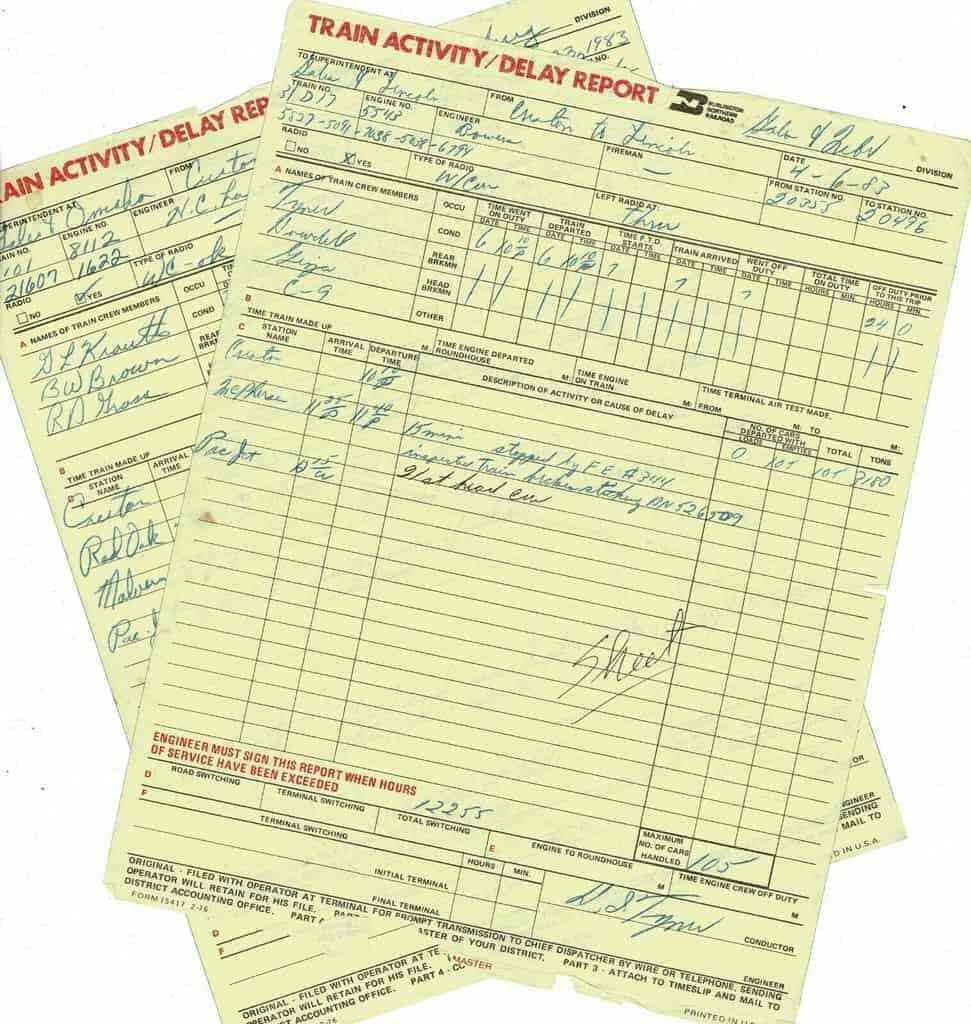 TRAIN ACTIVITY/DELAY REPORT
BURLINGTON NORTHERN RAILROAD
DIVISION
TO SUPERINTENDENT AT
& Lincoln
FROM
Creston to Lincoln
DIVISION
TRAIN NO.
ENGINE NO.
5543
ENGINEER
Bowen
FIREMAN
—
DATE
4-6-83
RADIO
NO
X YES
TYPE OF RADIO
W/Car
LEFT RADIO AT
Thru
FROM STATION NO.
20355
TO STATION NO.
20476
A NAMES OF TRAIN CREW MEMBERS
OCCU
TIME WENT ON DUTY
DATE TIME
TRAIN DEPARTED
DATE TIME
TIME F.T.D. STARTS
DATE TIME
TRAIN ARRIVED
DATE TIME
WENT OFF DUTY
DATE TIME
TOTAL TIME ON DUTY
HOURS MIN.
OFF DUTY PRIOR TO THIS TRIP
HOURS MIN.
Tyner
COND
6 10 10 P 6 10 10 P 7 7 7 24 0
Dowdell
REAR BRKMN
HEAD BRKMN
C-9
OTHER
B
TIME TRAIN MADE UP
M:
TIME ENGINE DEPARTED ROUNDHOUSE
M:
TIME ENGINE ON TRAIN
M:
TIME TERMINAL AIR TEST MADE.
FROM M: TO M:
C STATION NAME
ARRIVAL TIME
DEPARTURE TIME
DESCRIPTION OF ACTIVITY OR CAUSE OF DELAY
NO. OF CARS DEPARTED WITH
LOADS EMPTIES
TOTAL
TONS
Creston
10 10 P
0 105 105 3180
McPherson
11 25 P 11 40 P
15 min stopped by F E # 344
inspected train broken staking BN 526509
Pac Jct
91 at head cw
Sheet
ENGINEER MUST SIGN THIS REPORT WHEN HOURS
OF SERVICE HAVE BEEN EXCEEDED
D
ROAD SWITCHING
TERMINAL SWITCHING
TOTAL SWITCHING
12255
F
TERMINAL SWITCHING
HOURS
MIN.
INITIAL TERMINAL
FINAL TERMINAL
E
ENGINE TO ROUNDHOUSE
M
MAXIMUM NO. OF CARS HANDLED
105
TIME ENGINE CREW OFF DUTY
M
D. I. Tyner
CONDUCTOR
ENGINEER
ORIGINAL - FILED WITH OPERATOR AT TERMINAL FOR PROMPT TRANSMISSION TO CHIEF DISPATCHER BY WIRE OR TELEPHONE, SENDING
OPERATOR WILL RETAIN FOR HIS FILE.
ASTER OF YOUR DISTRICT.
PART 3 - ATTACH TO TIMESLIP AND MAIL TO
DISTRICT ACCOUNTING OFFICE.
FORM 15417 2-76
PRINTED IN U.S.A.
AIN ACTIVITY/DELAY REP
DIVISION
1983
NO.
PERINTENDENT AT
& Omaha
FROM
Creston
ENGINE NO.
8112
1622
ENGINEER
N.C.
21607
RADIO
NO
YES
TYPE OF RADIO
WC-ok
A NAMES OF TRAIN CREW MEMBERS
OCCU
G L Krauth
COND
B W Brown
R D Gross
B
TIME TRAIN MADE UP
STATION NAME
ARRIVAL TIME
Creston
Red Oak
Malvern
Pac J
D
F
ORIGINAL - FILED WITH OPERATOR AT TE
OPERATOR WILL RETAIN FOR HIS FILE.
DISTRICT ACCOUNTING OFFICE.
PART 4 - CC
MASTER
ENGINEER
SENDING
MAIL TO
D IN U.S.A.